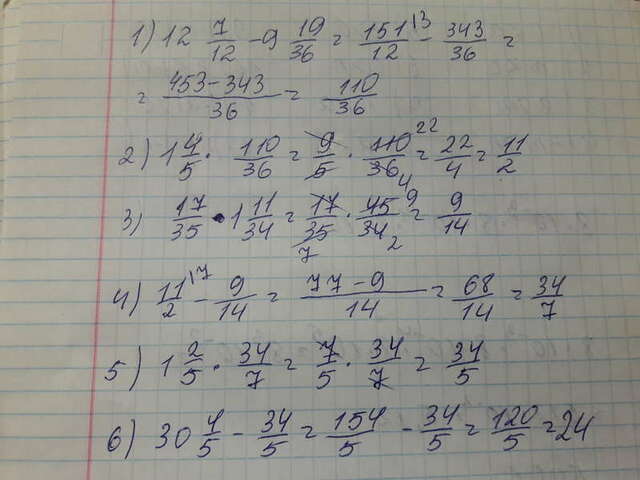 1) 12 7/12 - 9 19/36 = 151\3/12 - 343/36 =
= 453-343/36 = 110/36
2) 1 4/5 · 110/36 = 9/5 · 110 22/36 4 = 22/4 = 11/2
3) 17/35 · 1 11/34 = 17/35 7 · 45 9/34 2 = 9/14
4) 11\7/2 - 9/14 = 77-9/14 = 68/14 = 34/7
5) 1 2/5 · 34/7 = 7/5 · 34/7 = 34/5
6) 30 4/5 - 34/5 = 154/5 - 34/5 = 120/5 = 24